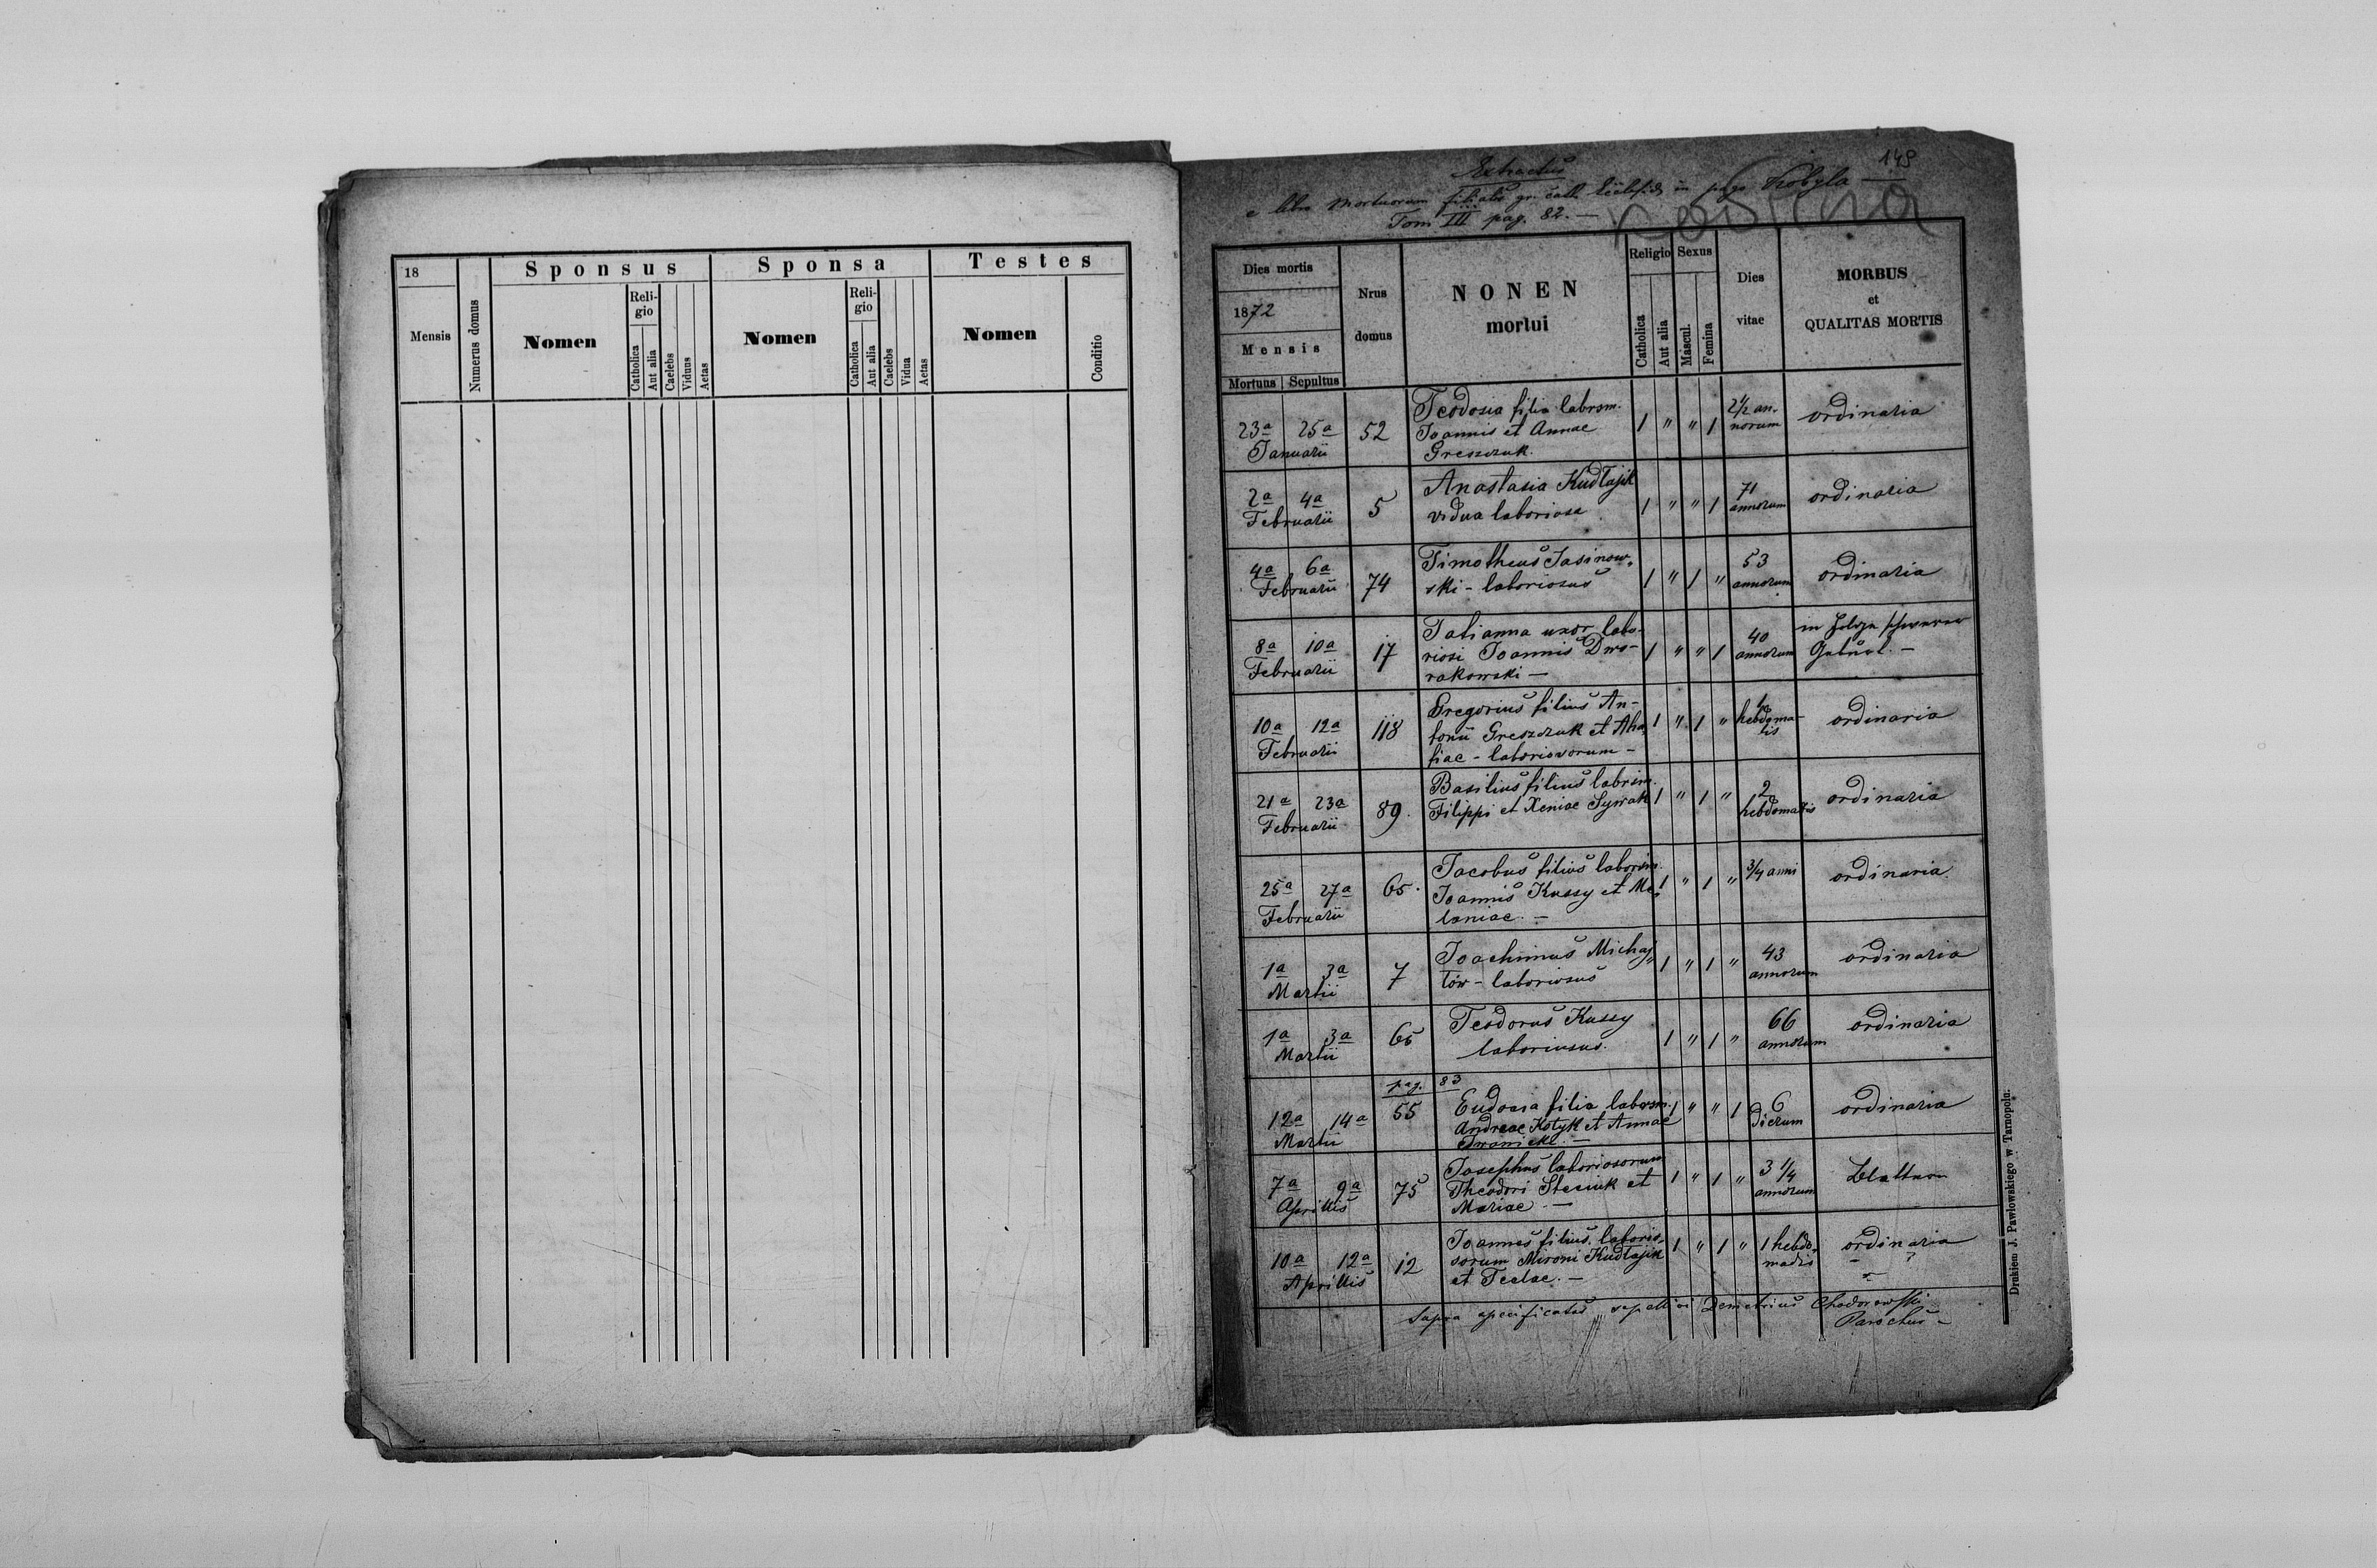 18
Mensis
Numerus domus
Sponsus
Nomen
Reli-
gio
Catholica
Aut alia
Caelebs
Viduus
Aetas
Sponsa
Nomen
Reli-
gio
Catholica
Aut alia
Caelebs
Vidua
Aetas
Testes
Nomen
Conditio
149
Extractus
e libro Mortuorum filialis gr. cath. Ecclesiae in pago Kobyla
Tom III pag. 82. —
Dies mortis
1872
Mensis
Mortuus Sepultus
Nrus
domus
NONEN
mortui
Religio
Catholica
Aut alia
Sexus
Mascul.
Femina
Dies
vitae
MORBUS
et
QUALITAS MORTIS
23a 25a 52 Teodosia filia laborsm. 1 " " 1 2 1/2 an- ordinaria
Januarii Joannis et Annae norum
Greszczuk.
2a 4a 5 Anastasia Kudłajik 1 " " 1 71 ordinaria
Februarii vidua laboriosa annorum
4a 6a 74 Timotheus Jasinow- 1 " 1 " 53 ordinaria
Februarii ski - laboriosus annorum
8a 10a 17 Tatianna uxor labo- 1 " " 1 40 in Folge schwerer
Februarii riosi Joannis Dwo- annorum Geburt. —
rakowski —
10a 12a 118 Gregorius filius An- 1 " 1 " hebdoma- ordinaria
Februarii tonii Greszczuk et tis
- laboriosorum -
21a 23a 89. Basilius filius laborsm. 1 " 1 " 2 ordinaria
Februarii Filippi et Xeniae Sywak hebdomatis
25a 27a 65. Jacobus filius laborsm. 1 " 1 " 3/4 anni ordinaria
Februarii Joannis Kussy et Me-
laniae. —
1a 3a 7 Joachimus Michaj- 1 " 1 " 43 ordinaria
Martii łów - laboriosus annorum
1a 3a 65 Teodorus Kussy 1 " 1 " 66 ordinaria
Martii laboriosus. annorum
pag. 83
12a 14a 55 Eudocia filia laborsm. 1 " " 1 6 ordinaria
Martii Andreae Kotyk et Annae dierum
7a 9a 75 Josephus laboriosorum 1 " 1 " 3 1/4 Blattern
Aprillis Theodori Steciuk et annorum
Mariae. —
10a 12a 12 Joannes filius laborio- 1 " 1 " 1 hebdo- ordinaria
Aprillis sorum Mironi Kudłajik madis
et Teclae. —
Supra specificatos sepellivi Demetrius Chodorowski
Parochus -
Drukiem J. Pawłowskiego w Tarnopolu.